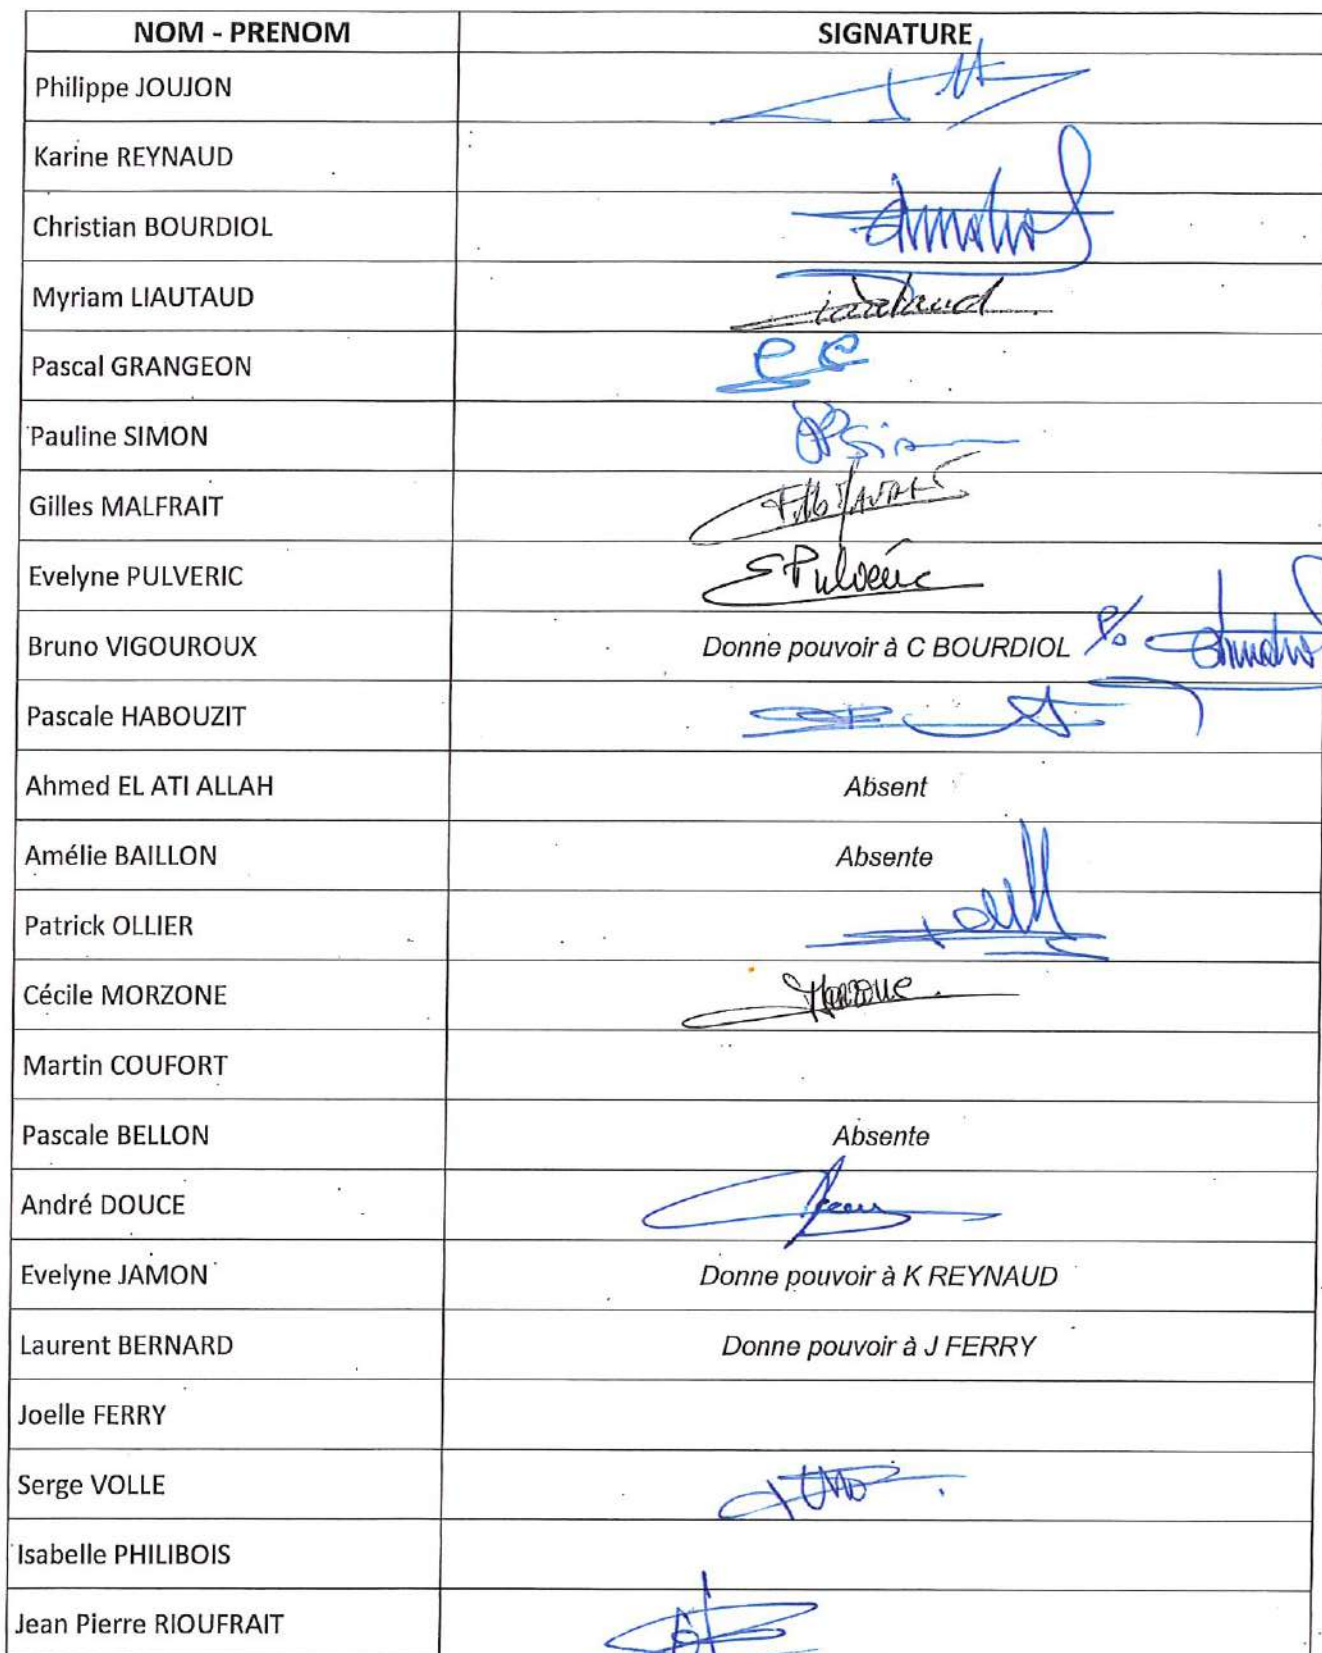 NOM - PRENOM SIGNATURE
Philippe JOUJON
Karine REYNAUD
Christian BOURDIOL
Myriam LIAUTAUD
Pascal GRANGEON
Pauline SIMON
Gilles MALFRAIT
Evelyne PULVERIC E Pulvéric
Bruno VIGOUROUX Donne pouvoir à C BOURDIOL P/o
Pascale HABOUZIT
Ahmed EL ATI ALLAH Absent
Amélie BAILLON Absente
Patrick OLLIER
Cécile MORZONE
Martin COUFORT
Pascale BELLON Absente
André DOUCE
Evelyne JAMON Donne pouvoir à K REYNAUD
Laurent BERNARD Donne pouvoir à J FERRY
Joelle FERRY
Serge VOLLE
Isabelle PHILIBOIS
Jean Pierre RIOUFRAIT